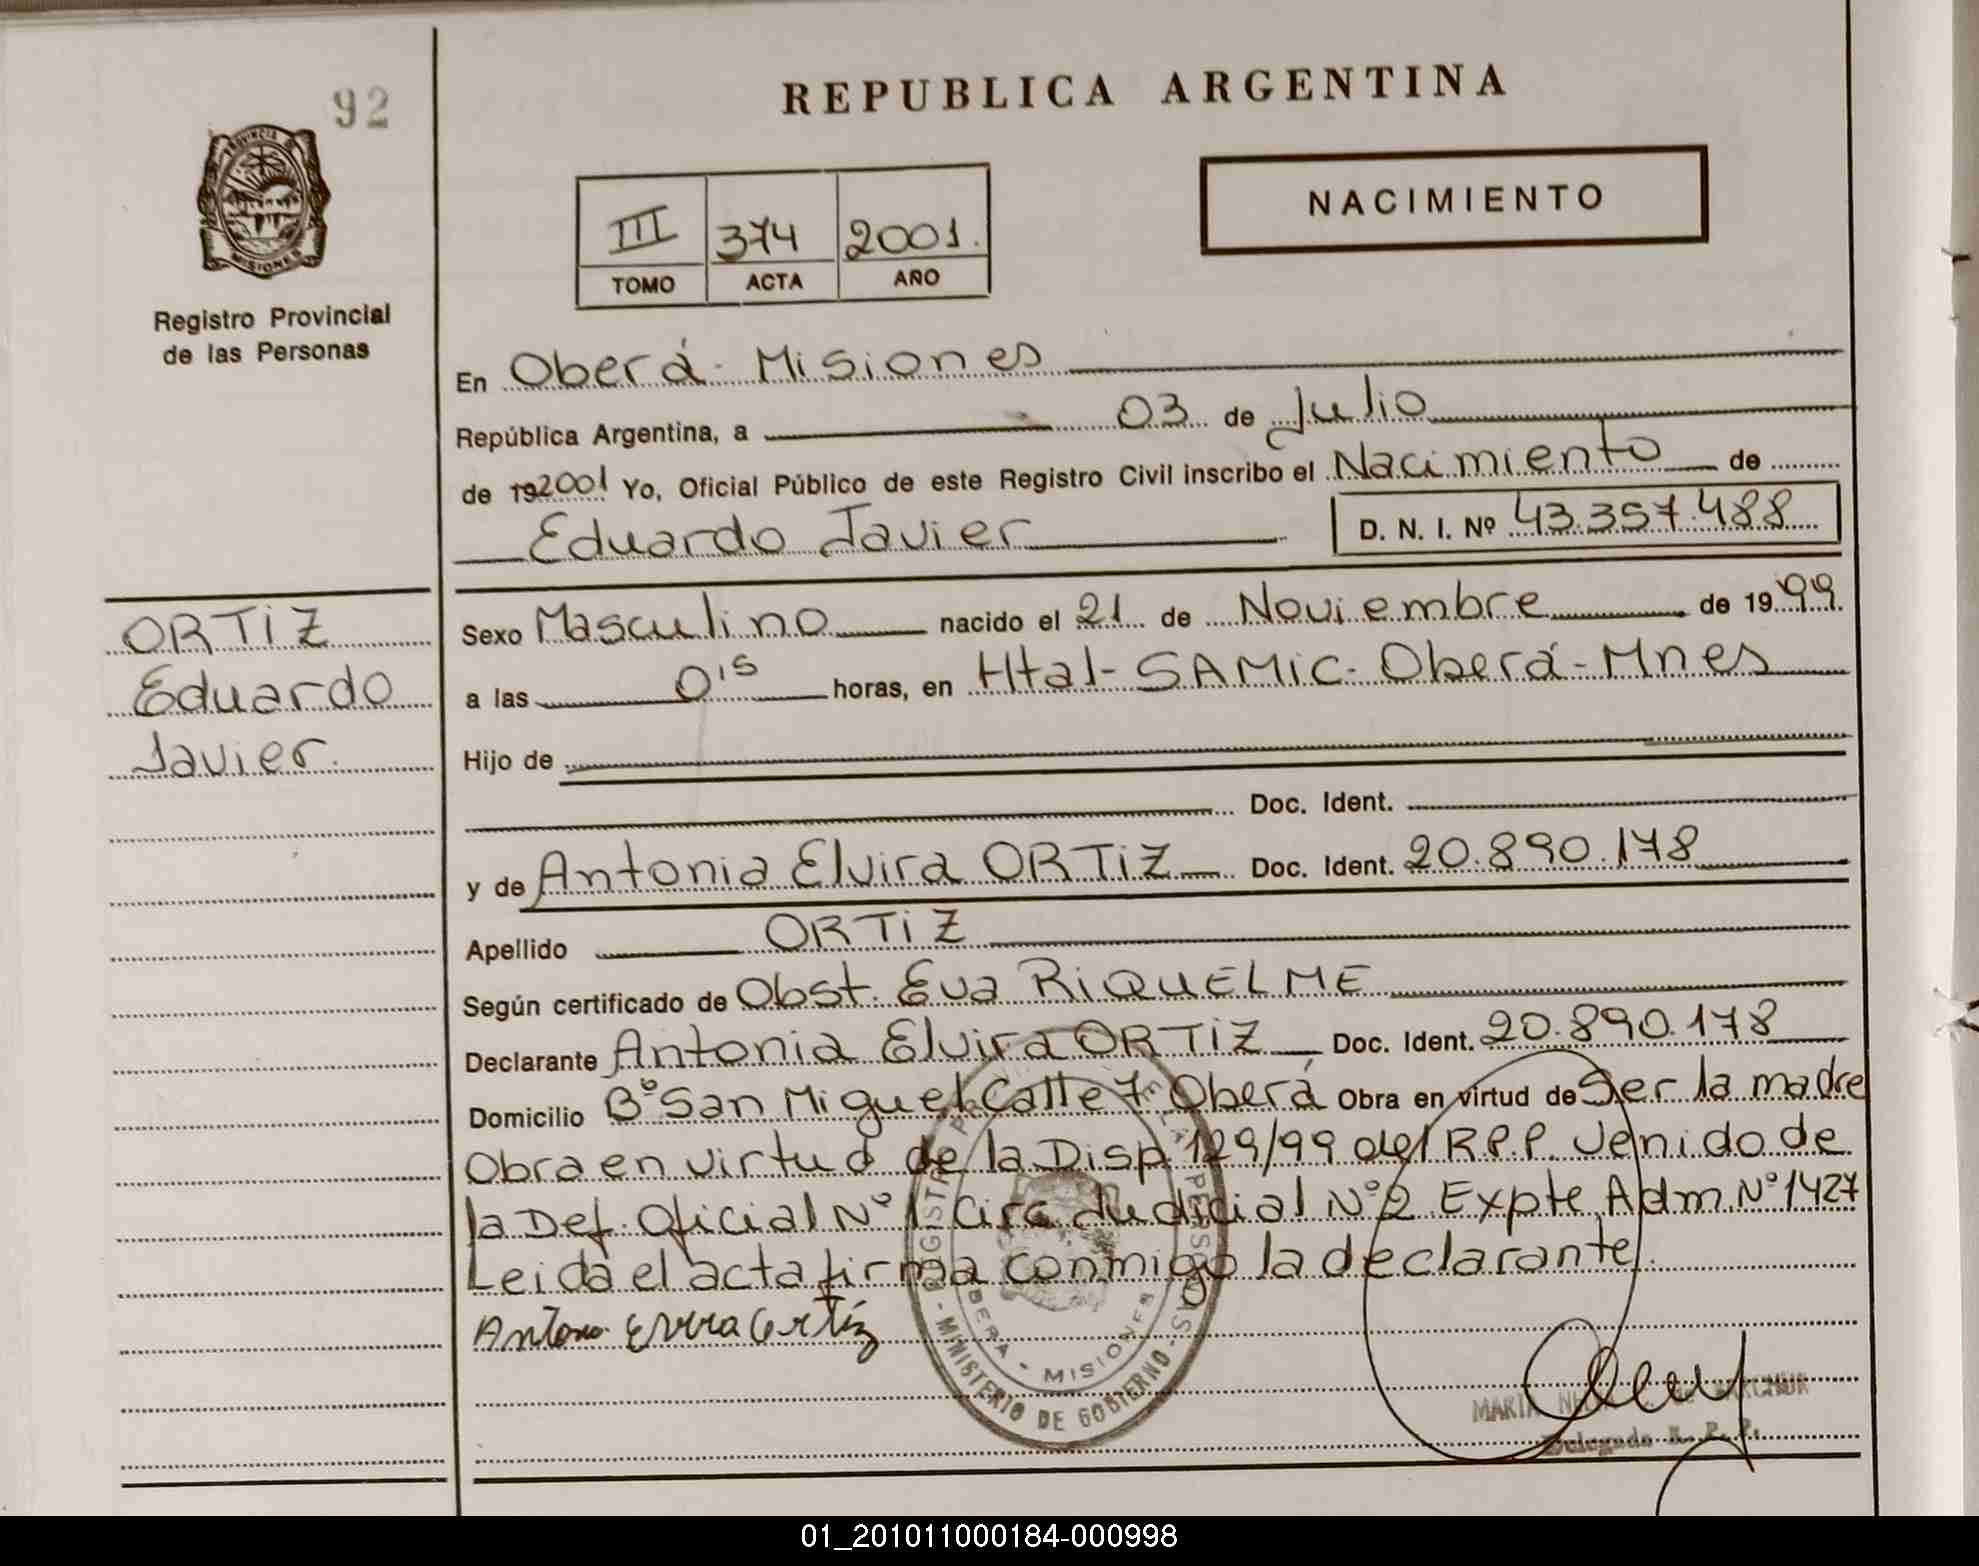 92
REPUBLICA ARGENTINA
PROVINCIA DE
MISIONES
Registro Provincial
de las Personas
NACIMIENTO
III 374 2001.
TOMO ACTA AÑO
En Oberá - Misiones
República Argentina, a 03 de Julio
de 192001 Yo, Oficial Público de este Registro Civil inscribo el Nacimiento de
Eduardo Javier D. N. I. Nº 43.357.488
ORTIZ
Eduardo
Javier.
Sexo Masculino nacido el 21 de Noviembre de 1999.
a las 0'5 horas, en Htal - SAMIC - Oberá - Mnes
Hijo de
Doc. Ident.
y de Antonia Elvira ORTIZ Doc. Ident. 20.890.178
Apellido ORTIZ
Según certificado de Obst. Eva RIQUELME
Declarante Antonia Elvira ORTIZ Doc. Ident. 20.890.178
Domicilio Bº San Miguel Calle 7 Oberá Obra en virtud de Ser la madre
Obra en virtud de la Disp 129/99 del R.P.P. Venido de
la Def. Oficial Nº 1 Circ Judicial Nº 2 Expte Adm. Nº 1427
Leida el acta firma conmigo la declarante.
Antonia Elvira Ortíz
REGISTRO PERSONAS
OBERA - MISIONES
- MINISTERIO DE GOBIERNO -
MARIA
Delegada R. P. P.
01_201011000184-000998